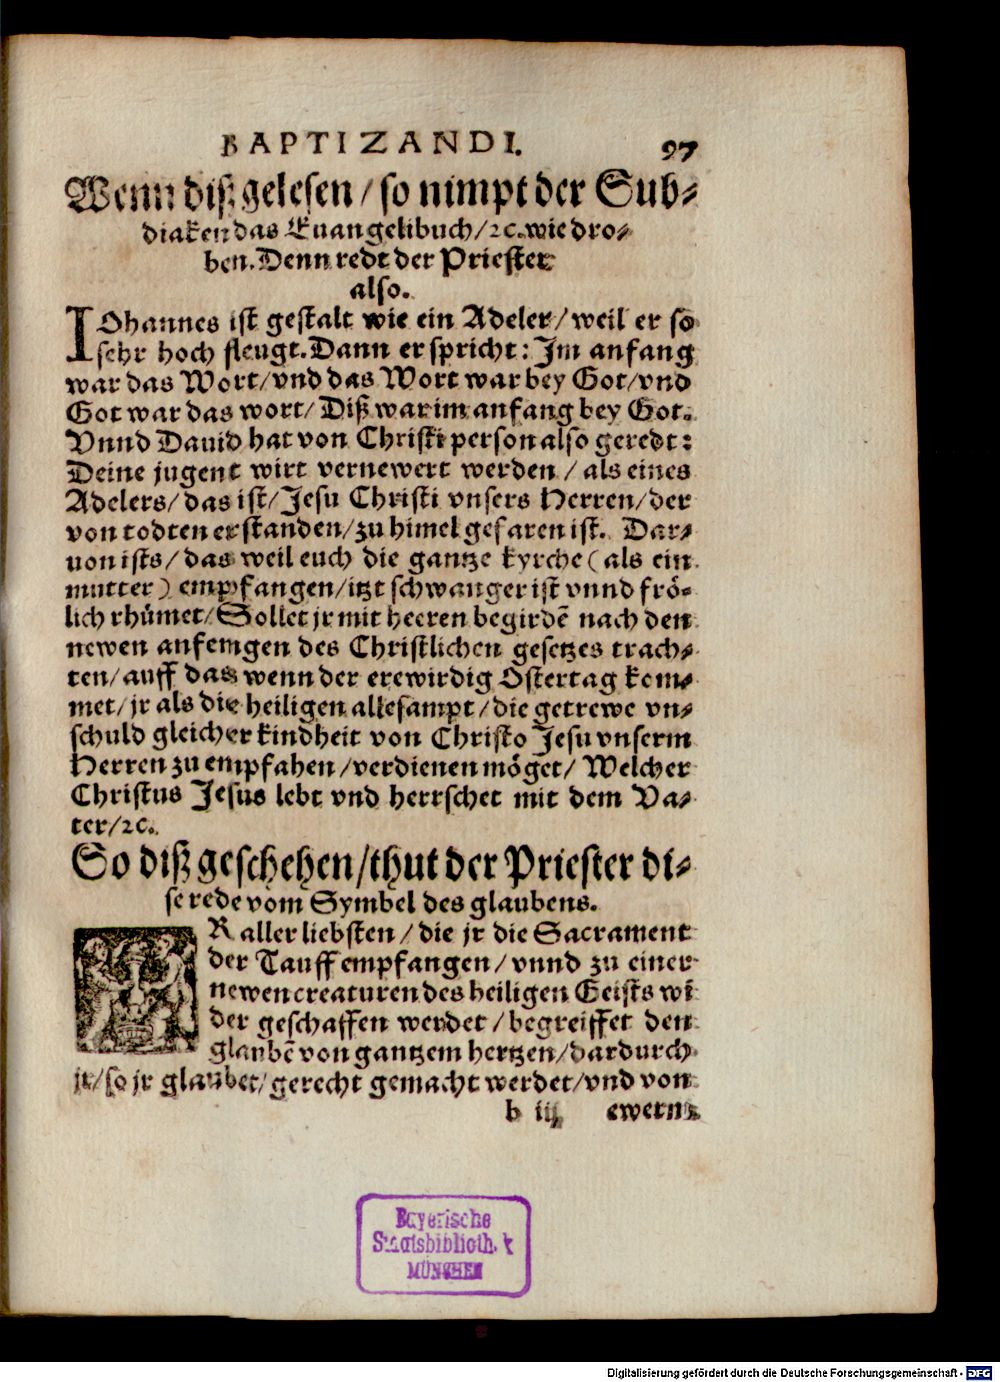 BAPTIZANDI. 97
Wenn diß gelesen/so nimpt der Sub-
diaken das Euangelibuch/ꝛc.wie dro-
ben.Denn redt der Priester
also.
IOhannes ist gestalt wie ein Adeler/weil er so
sehr hoch fleugt.Dann er spricht: Im anfang
war das Wort/vnd das Wort war bey Got/vnd
Got war das wort/Diß war im anfang bey Got.
Vnnd Dauid hat von Christi person also geredt:
Deine jugent wirt vernewert werden/als eines
Adelers/das ist/Jesu Christi vnsers Herren/der
von todten erstanden/zu himel gefaren ist. Dar-
uon ists/das weil euch die gantze kyrche (als ein
mutter) empfangen/itzt schwanger ist vnnd frö-
lich rhümet/Sollet jr mit heeren begirdē nach den
newen anfemgen des Christlichen gesetzes trach-
ten/auff das wenn der erewirdig Ostertag kom-
met/jr als die heiligen allesampt/die getrewe vn-
schuld gleicher kindheit von Christo Jesu vnserm
Herren zu empfahen/verdienen möget/Welcher
Christus Jesus lebt vnd herrschet mit dem Va-
ter/ꝛc.
So diß geschehen/thut der Priester di-
se rede vom Symbel des glaubens.
R aller liebsten/die jr die Sacrament
der Tauff empfangen/vnnd zu einer
newen creaturen des heiligen Geists wi
der geschaffen werdet/begreiffet den
glaubē von gantzem hertzen/dardurch
jr/so jr glaubet/gerecht gemacht werdet/vnd von
b iij ewern
Bayerische
Staatsbibliothek
MÜNCHEN
Digitalisierung gefördert durch die Deutsche Forschungsgemeinschaft - DFG